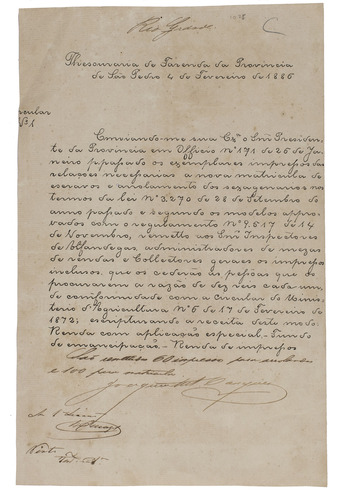 Rio Grande
Thesouraria de Fazenda da Provincia
de São Pedro 4 de Fevereiro de 1886
cular
Nº 1
Enviando-me sua Exª o Snr Presiden-
te da Provincia em Officio Nº 171 de 26 de Ja-
neiro pº passado os exemplares impressos das
relações necessarias a nova matricula de
escravos e arrolamento dos sexagenarios nos
termos da lei Nº 3.270 de 28 de Setembro do
anno passado e segundo os modelos appro-
vados com o regulamento Nº 9.517 de 14
de Novembro, remetto aos Snrs Inspectores
de Alfandegas, administradores de mezas
de rendas e Collectores geraes os impressos
inclusos, que os cederão ás pessoas que os
procurarem a razão de dez réis cada um,
de conformidade com a Circular do Minis-
terio d'Agricultura Nº 6 de 17 de Fevereiro de
1872, escripturando a receita deste modo:
Renda com applicação especial - Fundo
de emancipação - Renda de impressos
São
e 100 para matricula